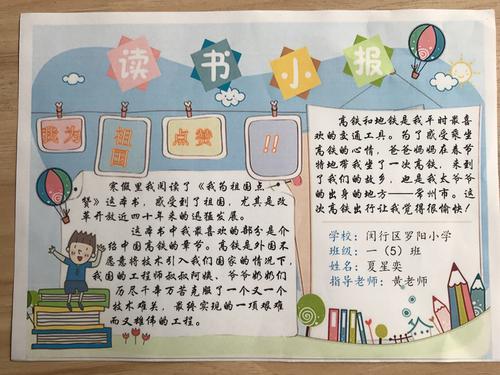 读书小报
我为祖国点赞!!
寒假里我阅读了《我为祖国点
赞》这本书，感受到了祖国，尤其是改
革开放近四十年来的迅猛发展。
这本书中我最喜欢的部分是介
绍中国高铁的章节。高铁是外国不
愿意将技术引入我们国家的情况下，
我国的工程师叔叔阿姨、爷爷奶奶们
历尽千辛万苦克服了一个又一个
技术难关，最终实现的一项艰难
而又雄伟的工程。
高铁和地铁是我平时最喜
欢的交通工具。为了感受乘坐
高铁的心情，爸爸妈妈在春节
特地带我坐了一次高铁，来到
了我们的故乡，也是我太爷爷
的出身的地方——常州市。这
次高铁出行让我觉得很愉快！
学校：闵行区罗阳小学
班级：一（5）班
姓名：夏星奕
指导老师：黄老师